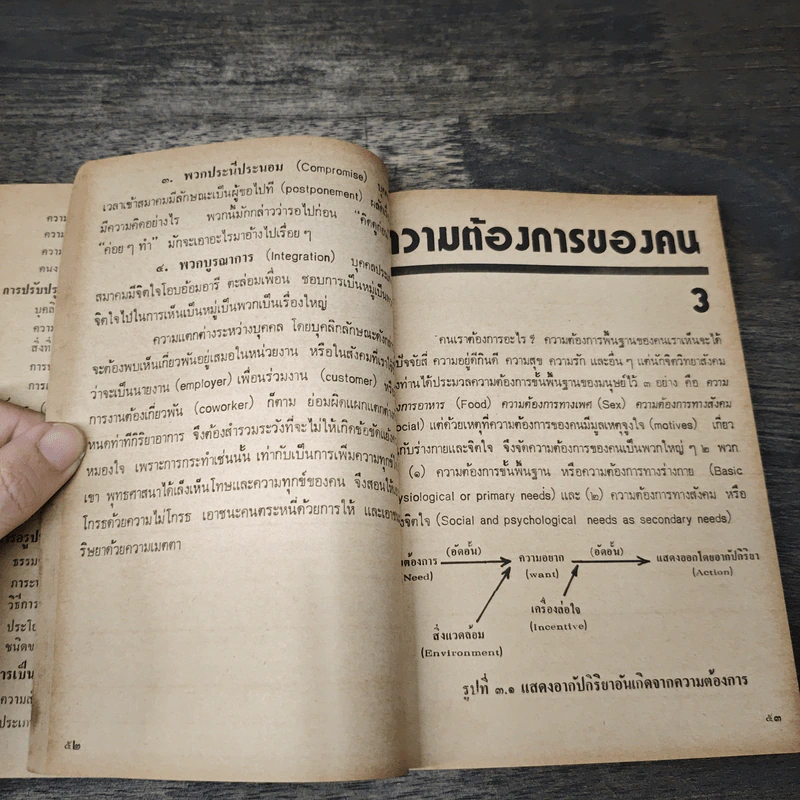 ๓. พวกประนีประนอม (Compromise)
เวลาเข้าสมาคมมีลักษณะเป็นผู้ขอไปที (postponement)
มีความคิดอย่างไร พวกนี้มักกล่าวว่ารอไปก่อน "คิดดูก่อน"
"ค่อย ๆ ทำ" มักจะเอาอะไรมาอ้างไปเรื่อย ๆ
๔. พวกบูรณาการ (Integration)
สมาคมมีจิตใจโอบอ้อมอารี ตะล่อมเพื่อน ชอบการเป็นหมู่เป็น
จิตใจไปในการเห็นเป็นหมู่เป็นพวกเป็นเรื่องใหญ่
ความแตกต่างระหว่างบุคคล โดยบุคลิกลักษณะดังกล่าว
จะต้องพบเห็นเกี่ยวพันอยู่เสมอในหน่วยงาน หรือในสังคมที่เรา
ว่าจะเป็นนายงาน (employer) เพื่อนร่วมงาน (customer)
การงานต้องเกี่ยวพัน (coworker) ก็ตาม ย่อมผิดแผกแตกต่าง
หนดท่าทีกิริยาอาการ จึงต้องสำรวมระวังที่จะไม่ให้เกิดข้อขัดแย้ง
หมองใจ เพราะการกระทำเช่นนั้น เท่ากับเป็นการเพิ่มความทุกข์
เขา พุทธศาสนาได้เล็งเห็นโทษและความทุกข์ของคน จึงสอนให้
โกรธด้วยความไม่โกรธ เอาชนะคนตระหนี่ด้วยการให้ และเอา
ริษยาด้วยความเมตตา
๕๒
ความต้องการของคน
3
คนเราต้องการอะไร ? ความต้องการพื้นฐานของคนเราเห็นจะได้
ปัจจัยสี่ ความอยู่ดีกินดี ความสุข ความรัก และอื่น ๆ แต่นักจิตวิทยาสังคม
ท่านได้ประมวลความต้องการขั้นพื้นฐานของมนุษย์ไว้ ๓ อย่าง คือ ความ
การอาหาร (Food) ความต้องการทางเพศ (Sex) ความต้องการทางสังคม
ocial) แต่ด้วยเหตุที่ความต้องการของคนมีมูลเหตุจูงใจ (motives) เกี่ยว
กับร่างกายและจิตใจ จึงจัดความต้องการของคนเป็นพวกใหญ่ ๆ ๒ พวก
(๑) ความต้องการขั้นพื้นฐาน หรือความต้องการทางร่างกาย (Basic
ysiological or primary needs) และ (๒) ความต้องการทางสังคม หรือ
จิตใจ (Social and psychological needs as secondary needs)
ต้องการ (อัดอั้น) ความอยาก (อัดอั้น) แสดงออกโดยอากัปกิริยา
Need) (want) (Action)
เครื่องล่อใจ
(Incentive)
สิ่งแวดล้อม
(Environment)
รูปที่ ๓.๑ แสดงอากัปกิริยาอันเกิดจากความต้องการ
๕๓